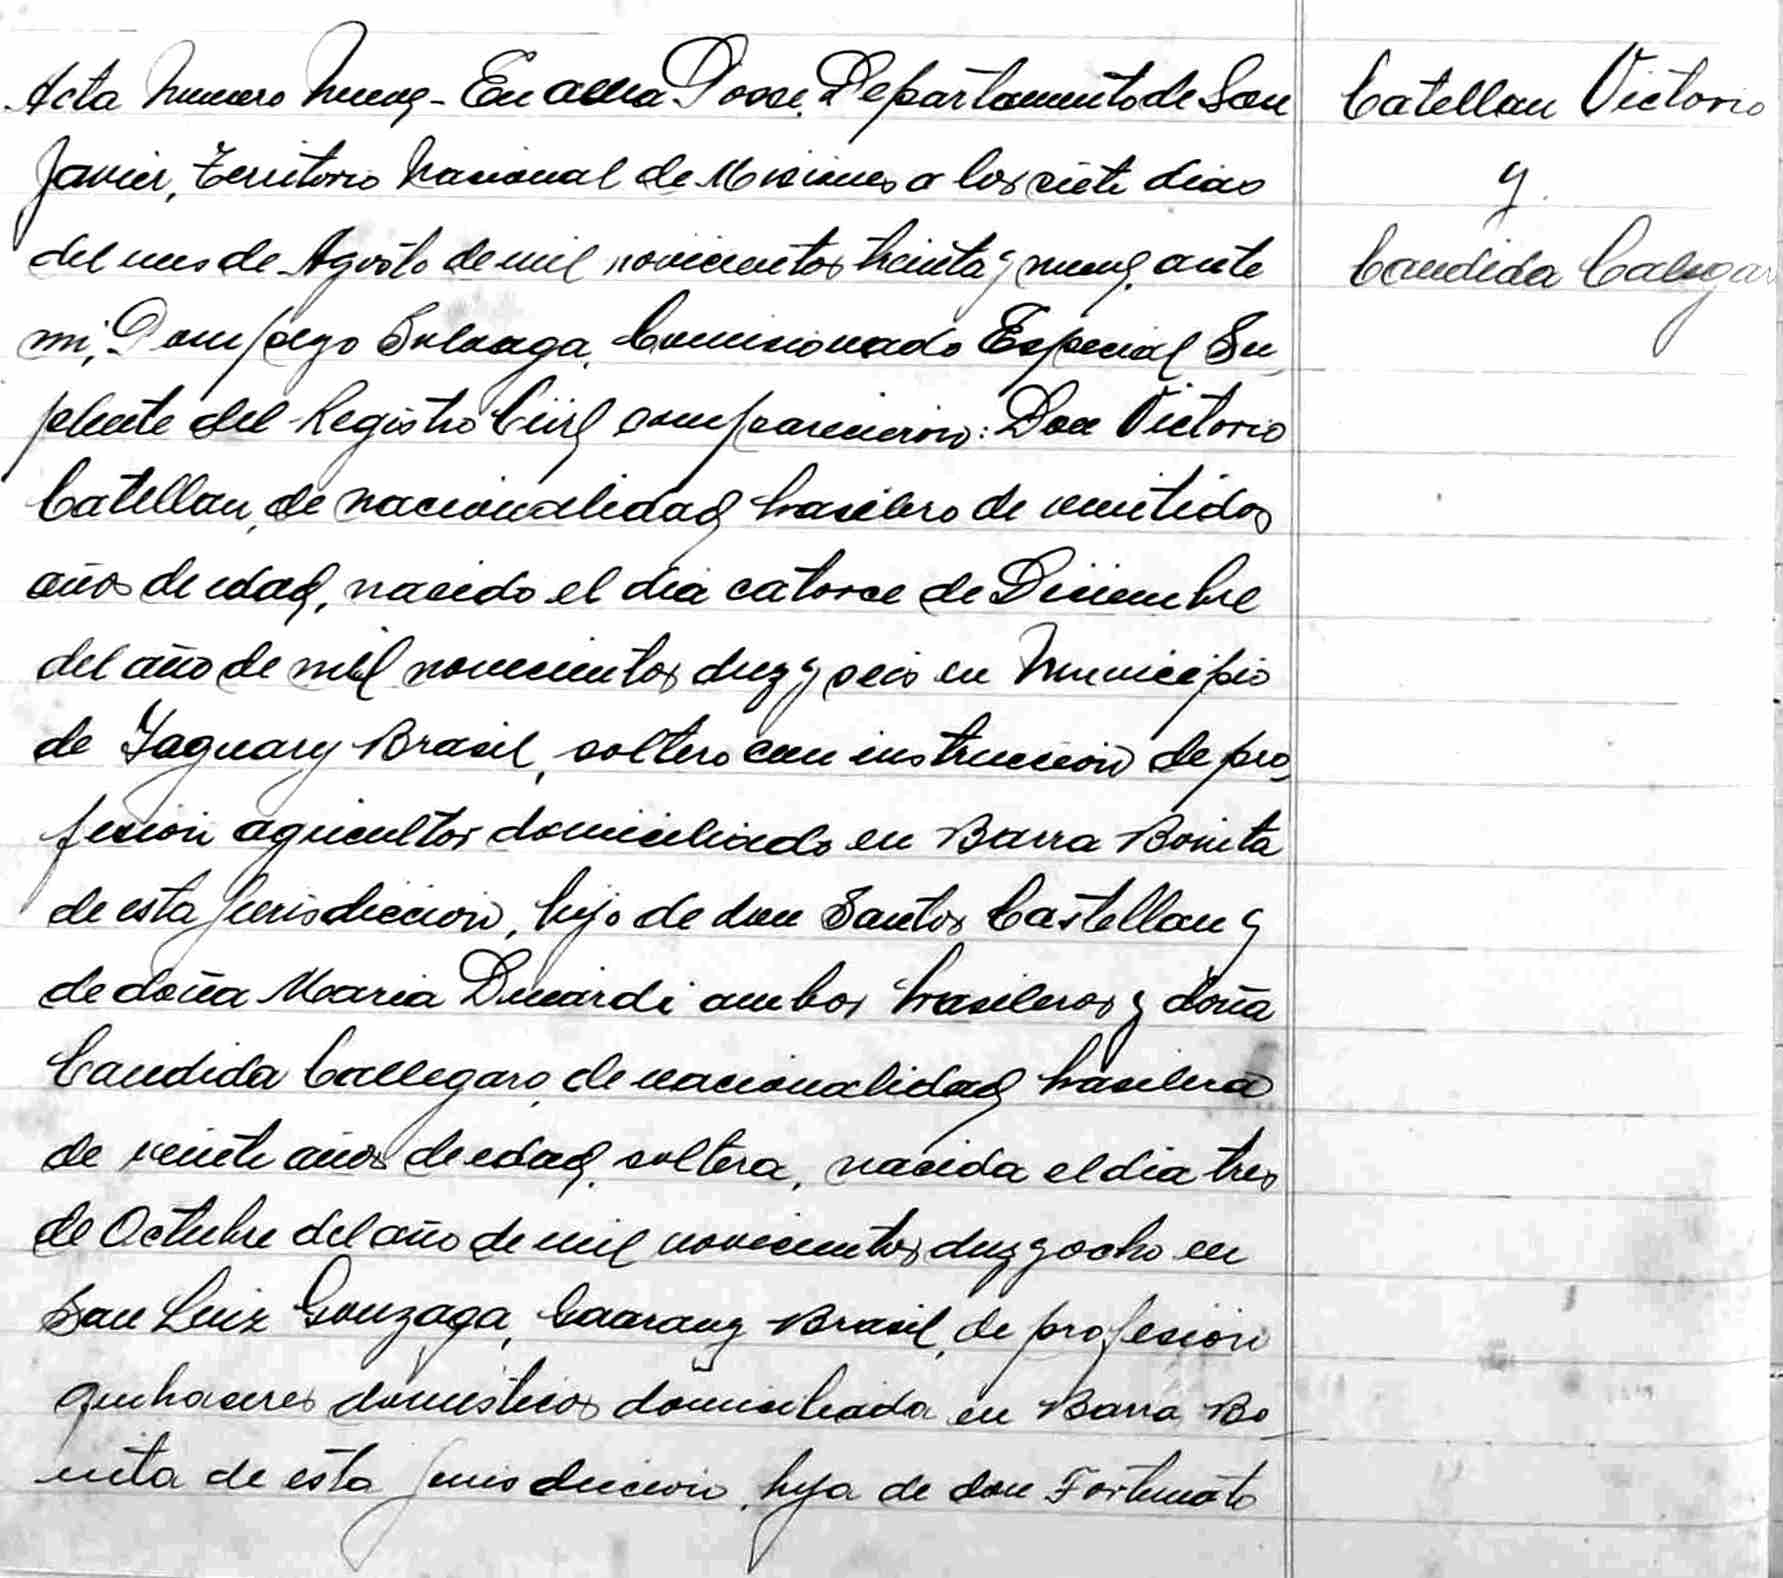 Acta Numero Nueve - En Alba Posse, Departamento de San
Javier, Territorio Nacional de Misiones a los siete dias
del mes de Agosto de mil novecientos treinta y nueve, ante
mi, Pompeyo Subeaga, Comisionado Especial Su_
plente del Registro Civil comparecieron: Don Victorio
Catellan, de nacionalidad brasilero de veintidos
años de edad, nacido el dia catorce de Diciembre
del año de mil novecientos diez y seis en Municipio
de Yaguary Brasil, soltero con instruccion de pro_
fesion agricultor domiciliado en Barra Bonita
de esta jurisdiccion, hijo de don Santos Castellan y
de doña Maria Dinardi ambos brasileros y doña
Candida Callegaro, de nacionalidad brasilera
de veinte años de edad, soltera, nacida el dia tres
de Octubre del año de mil novecientos diez y ocho en
San Luiz Gonzaga, Brasil, de profesion
quehaceres domesticos domiciliada en Barra Bo_
nita de esta jurisdiccion, hija de don Fortunato
Catellan Victorio
y
Candida